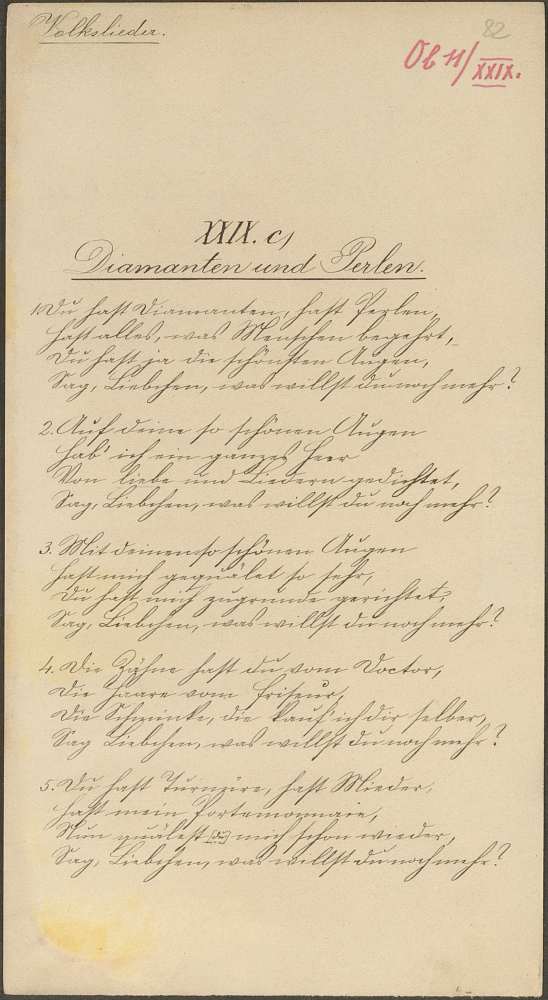 Volkslieder.
82
Ob 11/XXIX.
XXIX. c,
Diamanten und Perlen.
1. Du hast Diamanten, hast Perlen,
Hast alles, was Menschen begehrt,
Du hast ja die schönsten Augen,
Sag, Liebchen, was willst du noch mehr?
2. Auf deine so schönen Augen
Hab' ich ein ganzes Heer
Von liebe und Liedern gedichtet,
Sag, Liebchen, was willst du noch mehr?
3. Mit deinen so schönen Augen
Hast mich gequälet so sehr,
Du hast mich zugrunde gerichtet,
Sag, Liebchen, was willst du noch mehr?
4. Die Zähne hast du vom Doctor,
Die Haare vom Friseur,
Die Schminke, die kauf' ich dir selber,
Sag Liebchen, was willst du noch mehr?
5. Du hast Turnüre, hast Mieder,
Hast mein Portemonnaie,
Nun quälest (du) mich schon wieder,
Sag, Liebchen, was willst du noch mehr?